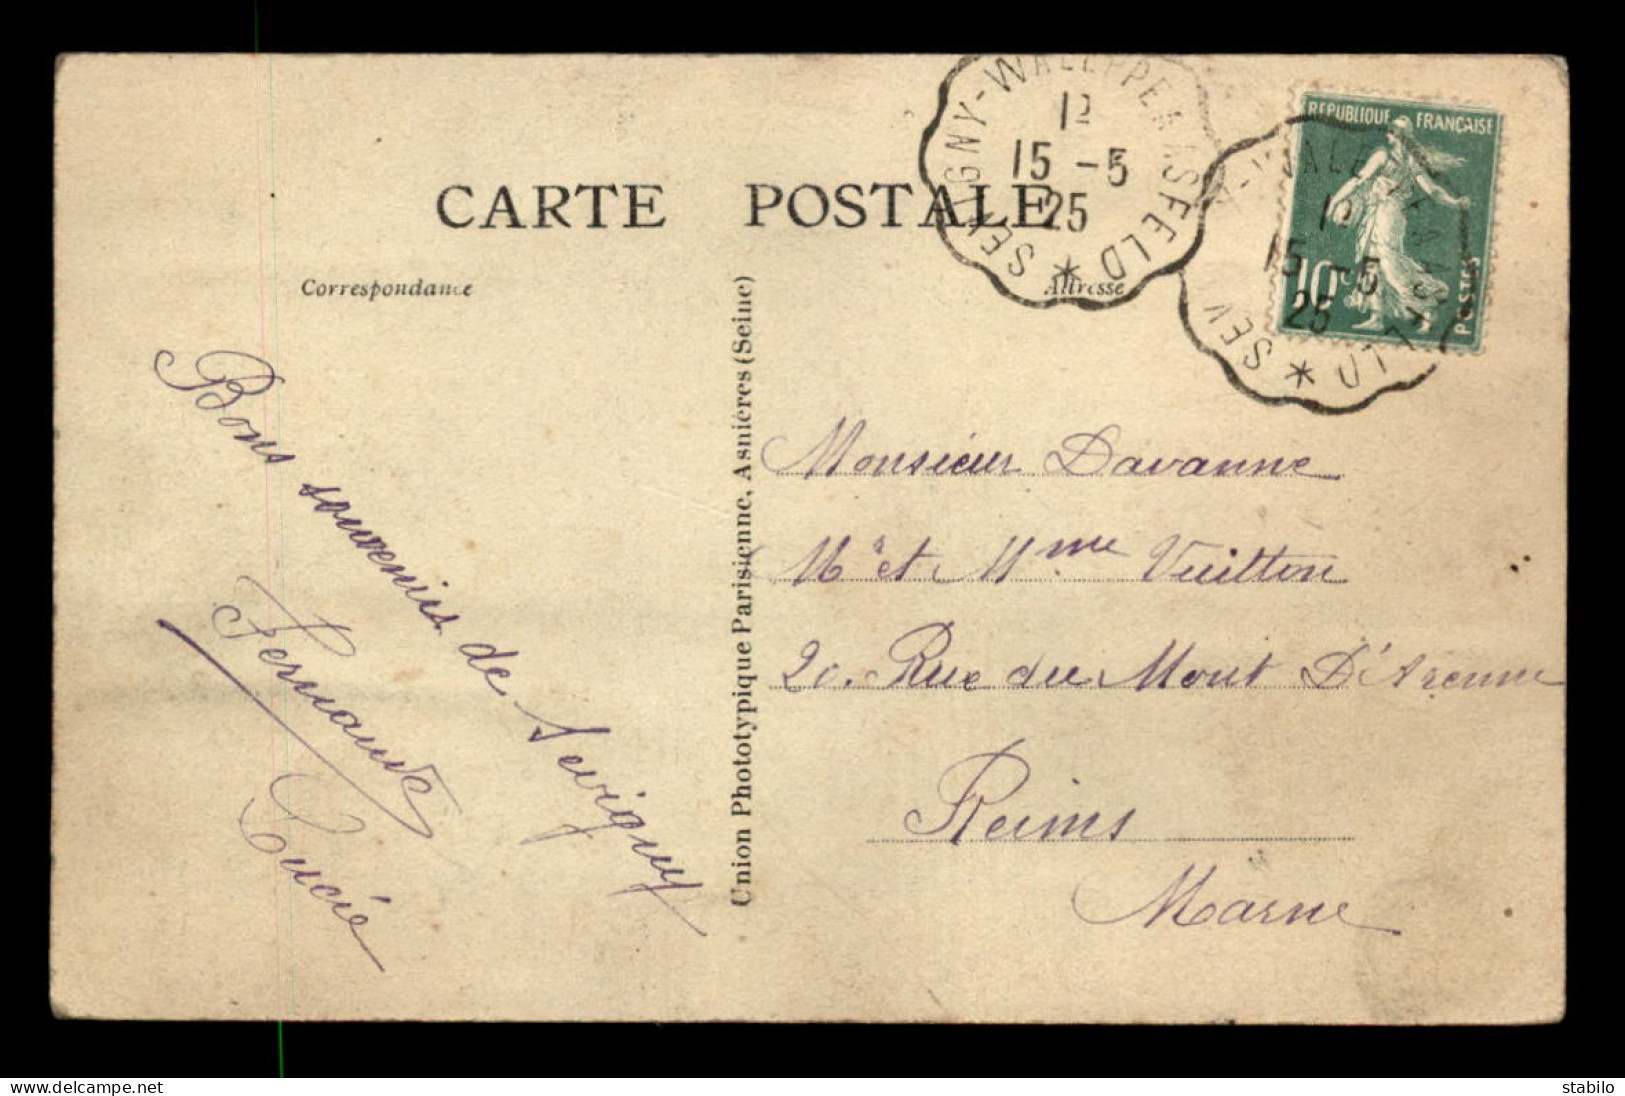 CARTE POSTALE
Correspondance
Adresse
SEVIGNY-WALEPPE A ASFELD *
12
15 -5
25
REPUBLIQUE FRANÇAISE
10c
POSTES
12
15 -5
25
Bons souvenirs de Sevigny
Fernande
Lucie
Union Phototypique Parisienne, Asnières (Seine)
Monsieur Davanne
Mr et Mme Vuitton
20. Rue du Mont D'Arenne
Reims
Marne
delcampe.net
stabilo